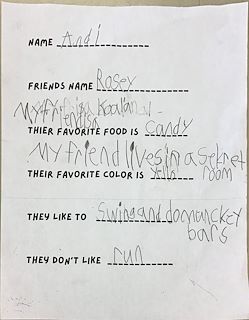 NAME Andi
FRIENDS NAME Rosey
My friend
THIER FAVORITE FOOD IS candy
My friend lives in a sekret
THEIR FAVORITE COLOR IS yello room
THEY LIKE TO swing and do monckey
bars
THEY DON'T LIKE run